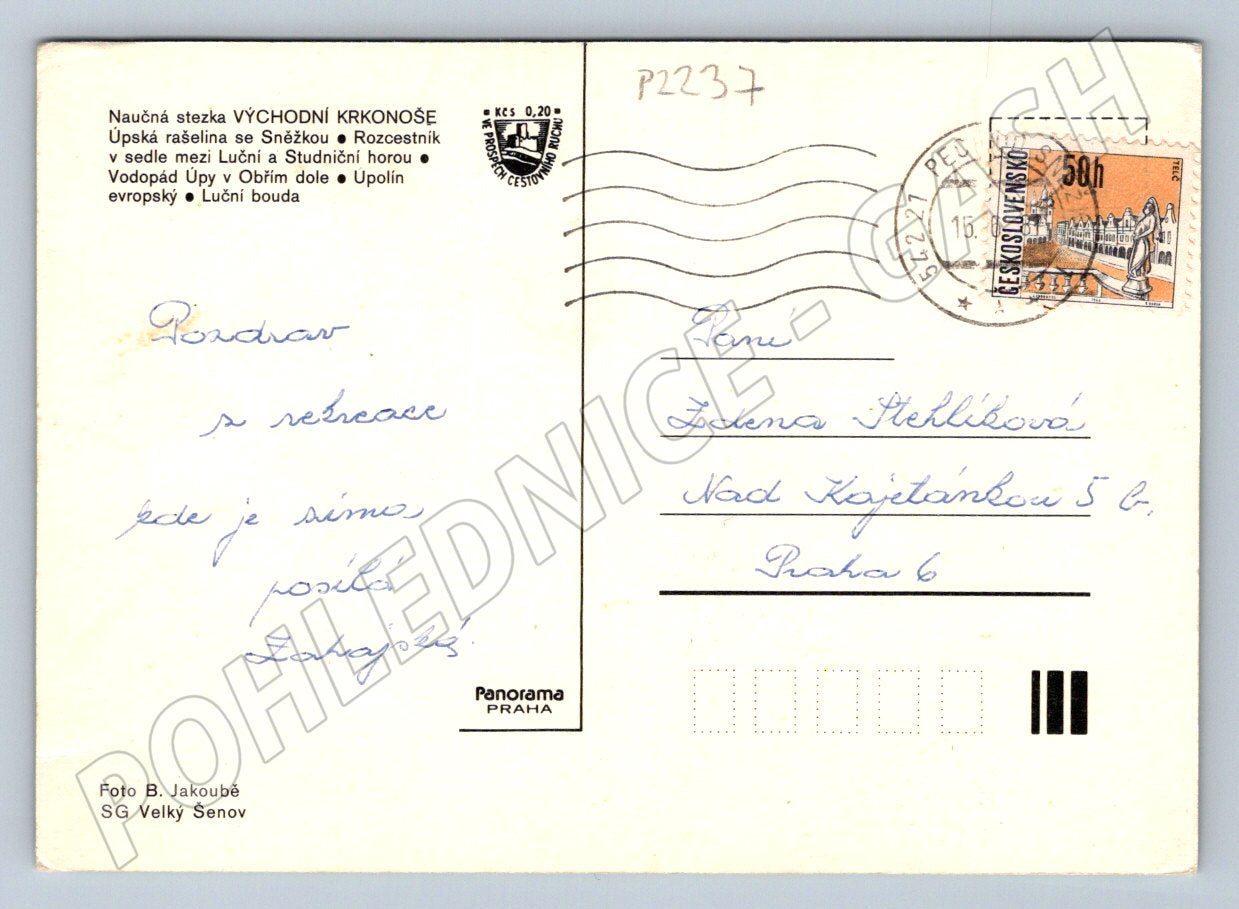 P2237
Naučná stezka VÝCHODNÍ KRKONOŠE
Úpská rašelina se Sněžkou ● Rozcestník
v sedle mezi Luční a Studniční horou ●
Vodopád Úpy v Obřím dole ● Upolín
evropský ● Luční bouda
Kčs 0,20
VE PROSPĚCH CESTOVNÍHO RUCHU
542 21 PEC
ČESKOSLOVENSKO
50h
TELČ
Pozdrav
z rekreace
kde je zima
posílá
Paní
Zdena Stehlíková
Nad Kajetánkou 5 b,
Praha 6
Panorama
PRAHA
Foto B. Jakoubě
SG Velký Šenov
POHLEDNICE - GASH